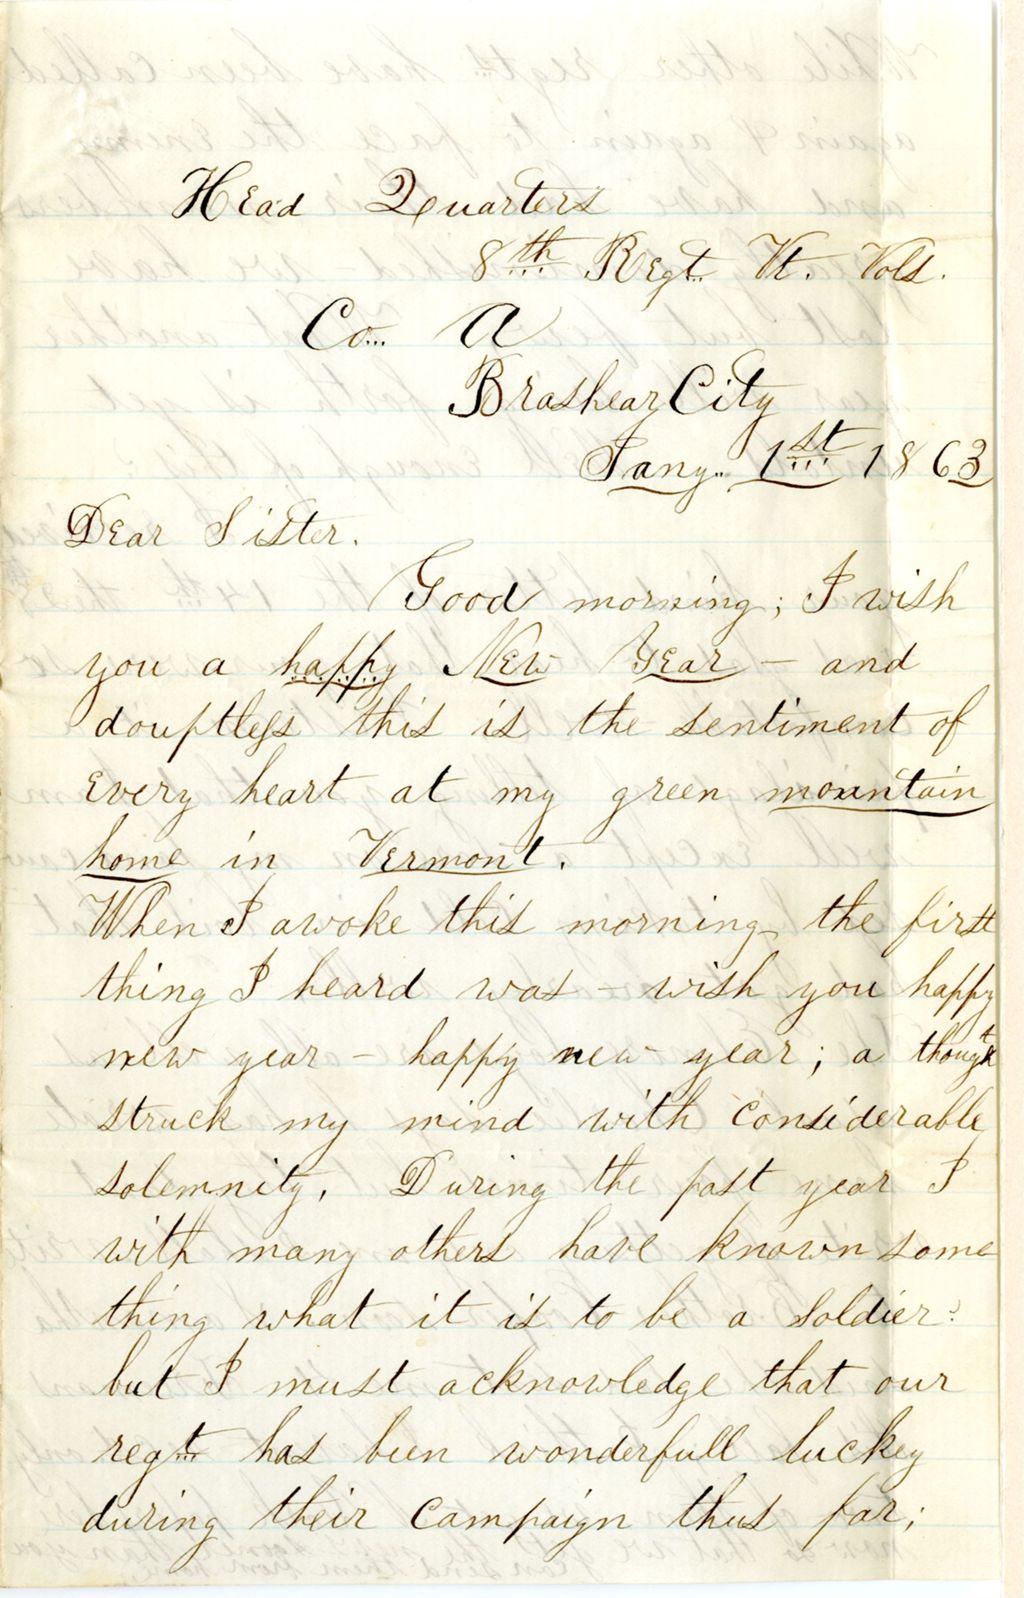 Head Quarters
8th Regt. Vt. Vols.
Co. A
Brashear City
Jany. 1st 1863
Dear Sister.
Good morning; I wish
you a happy New Year – and
douptless this is the sentiment of
every heart at my green mountain
home in Vermont.
When I awoke this morning the first
thing I heard was – wish you happy
new year – happy new year; a thought
struck my mind with considerable
solemnity. During the past year I
with many others have known some
thing what it is to be a soldier:
but I must acknowledge that our
regt. has been wonderfull luckey
during their campaign thus far;